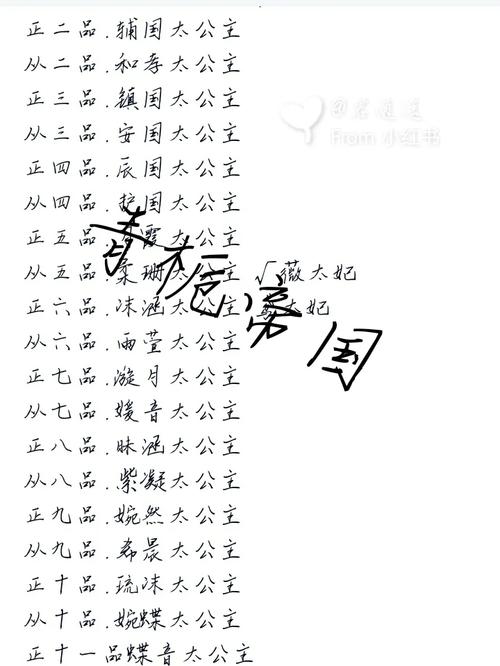 正二品.辅国太公主
从二品.和孝太公主
正三品.镇国太公主
从三品.安国太公主
正四品.辰国太公主
从四品.护国太公主
正五品.霞太公主
从五品.柔珊太公主 √薇太妃
正六品.沫涵太公主 太妃
从六品.雨萱太公主
正七品.漩月太公主
从七品.媛音太公主
正八品.昧涵太公主
从八品.紫凝太公主
正九品.婉然太公主
从九品.希晨太公主
正十品.琉沫太公主
从十品.婉蝶太公主
正十一品蝶音太公主
青栀帝国
From 小红书